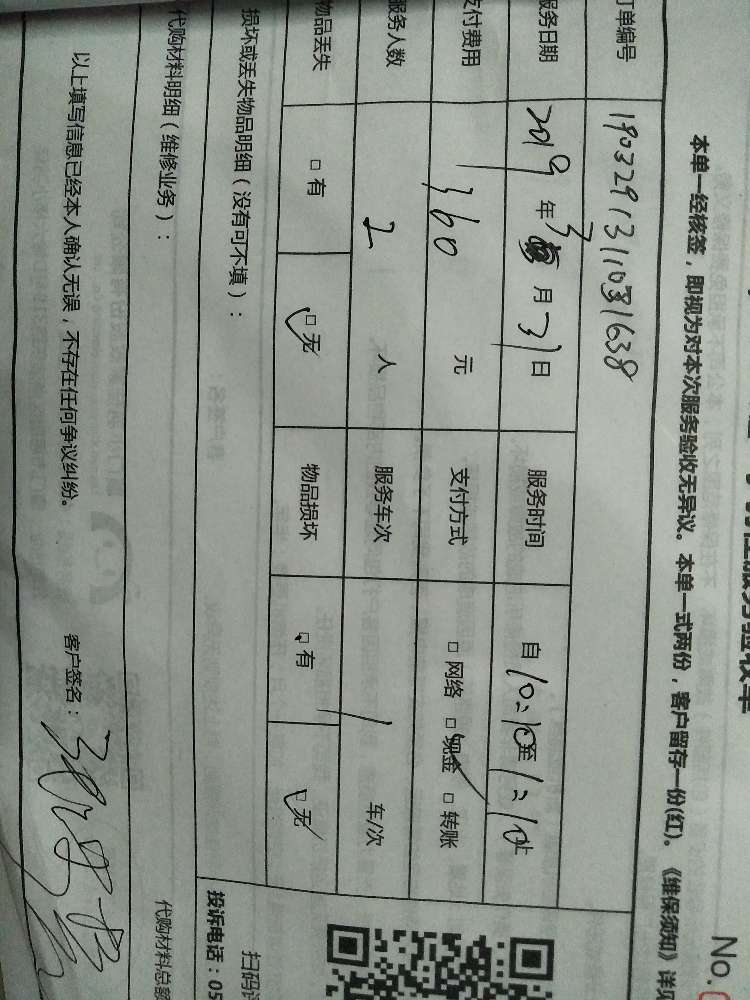 服务验收单
No.
本单一经核签，即视为对本次服务验收无异议。本单一式两份，客户留存一份(红)。《维保须知》详
订单编号 190329131031638
服务日期 2019 年 3 月 31 日 服务时间 自 10:10 至 1:10 止
支付费用 360 元 支付方式 □ 网络 □ 现金 □ 转账
服务人数 2 人 服务车次 1 车/次
物品丢失 □ 有 □ 无 物品损坏 □ 有 □ 无
损坏或丢失物品明细（没有可不填）：
扫码
投诉电话：05
代购材料明细（维修业务）：
代购材料总额
以上填写信息已经本人确认无误，不存在任何争议纠纷。 客户签名：